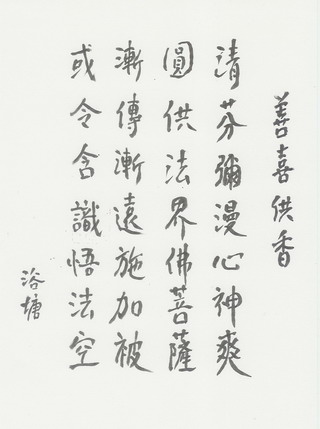 善喜供香
清芬彌漫心神爽
圓供法界佛菩薩
漸傳漸遠施加被
或令含識悟法空
浴塘